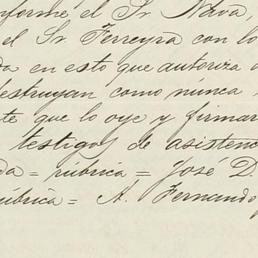 nforme el Sr Nava,
el Sr Ferreyra con lo
da en esto que autoriza
destruyan como nunca
te que lo oye y firmar
testigos de asistenc
da = rúbrica = José D.
rúbrica = A. Fernando